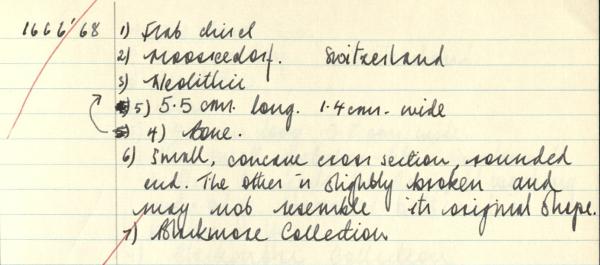 1666'68 1) Flat chisel
2) Moosseedorf. Switzerland
3) Neolithic
5) 5.5 cms. long. 1.4 cms. wide
4) bone.
6) Small, concave cross section, rounded
end. The other is slightly broken and
may not resemble its original shape.
7) Blackmore Collection